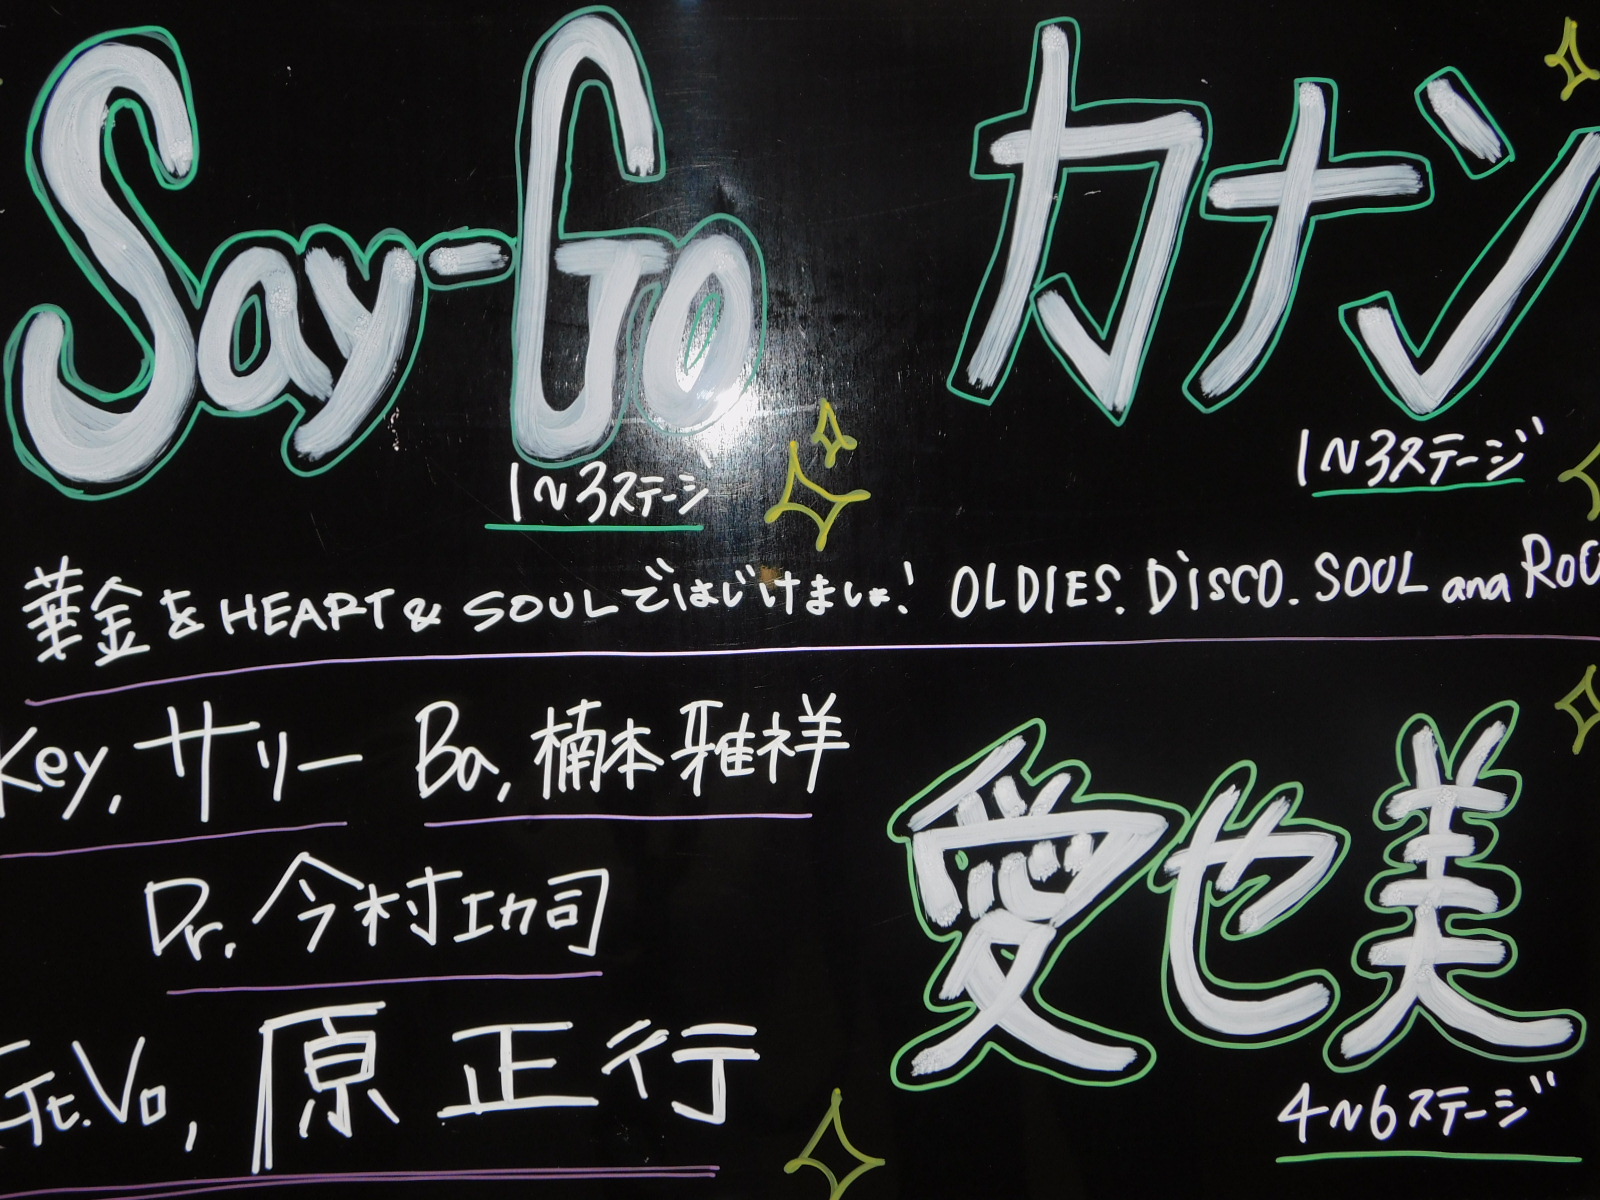 Say-Go カナン
1~3ステージ 1~3ステージ
華金を HEART & SOULではじけましょ! OLDIES. DISCO. SOUL and ROC
Key, サリー Ba, 楠本雅祥
Dr. 今村功司
Gt. Vo, 原 正行
愛也美
4~6ステージ